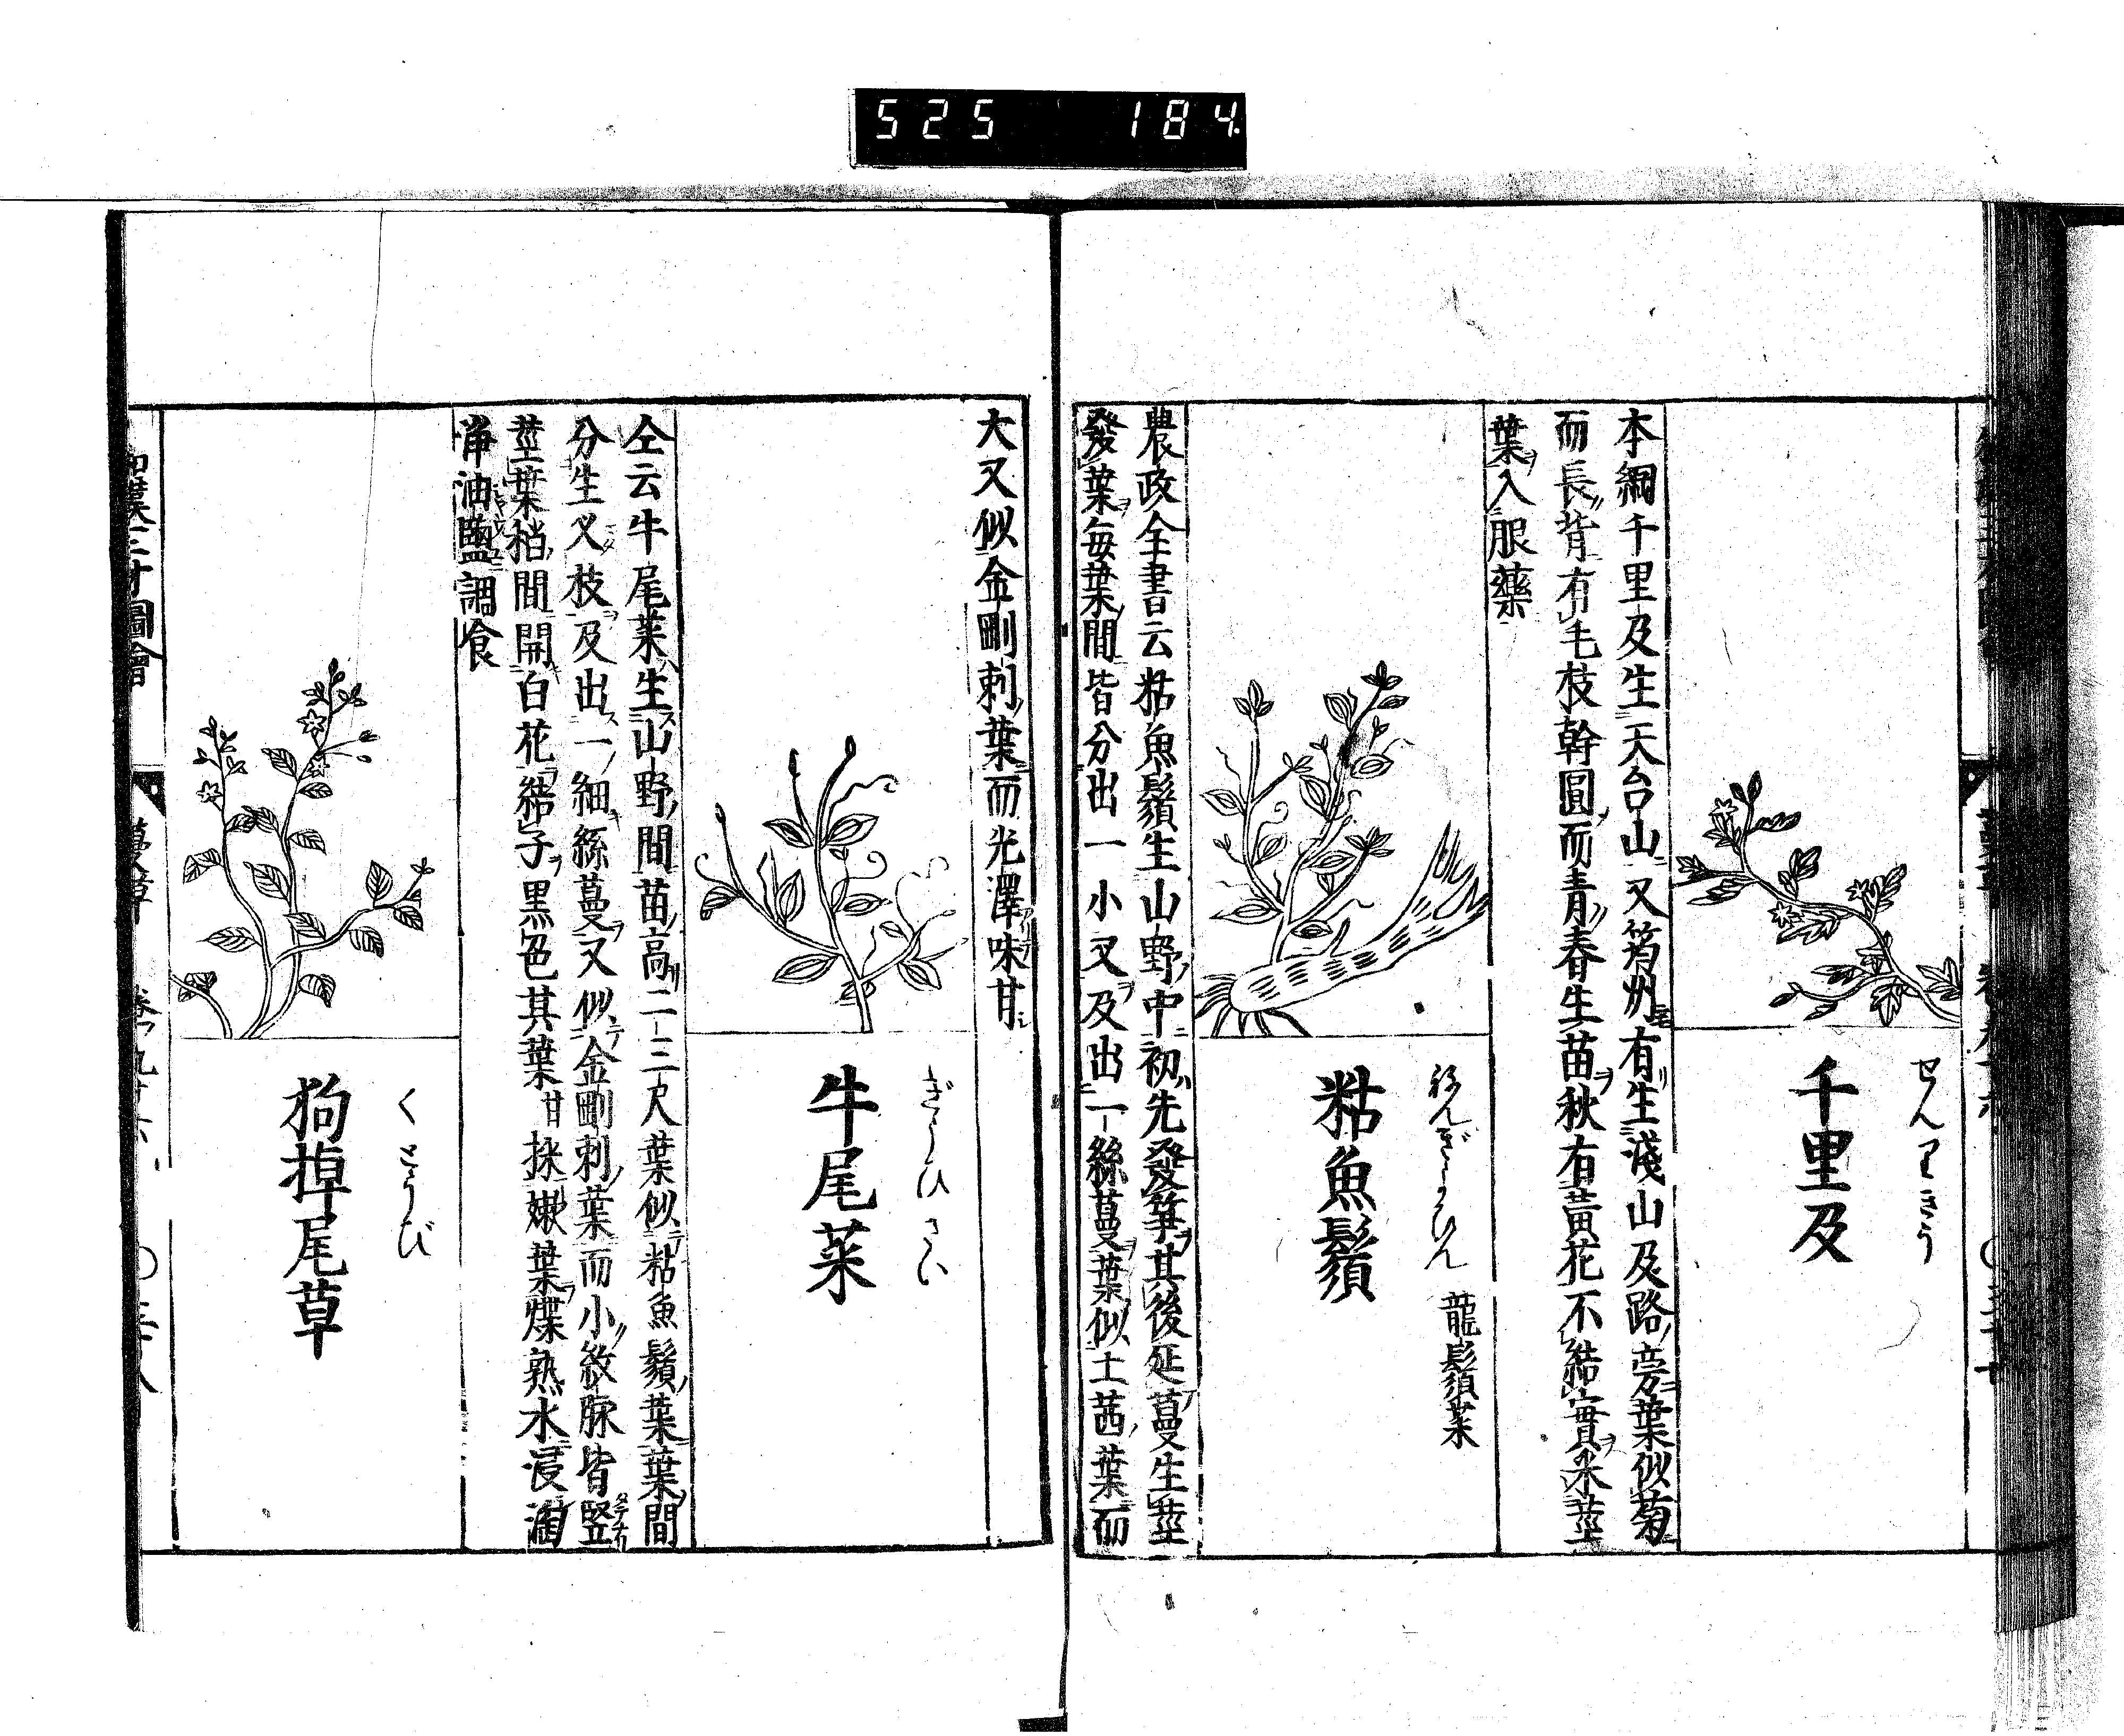 525 184
千里及
せんりきう
本綱千里及生天台山又筠州有生淺山及路旁葉似菊
而長背有毛枝幹圓而青春生苗秋有黃花不結實采莖
葉入服藥
粘魚鬚
ねんぎよひん
龍鬚菜
農政全書云粘魚鬚生山野中初先發筍其後延蔓生莖
發葉每葉間皆分出一小叉及出一絲蔓葉似土茜葉而
大又似金剛刺葉而光澤味甘
牛尾菜
ぎうひさい
仝云牛尾菜生山野間苗高二三尺葉似粘魚鬚葉葉間
分生叉枝及出一細絲蔓又似金剛刺葉而小紋脉皆竪
莖葉梢間開白花結子黒色其葉甘採嫩葉煠熟水浸淘
淨油鹽調食
狗掉尾草
くとうび
和漢三才圖會
蔓草
卷之九十六